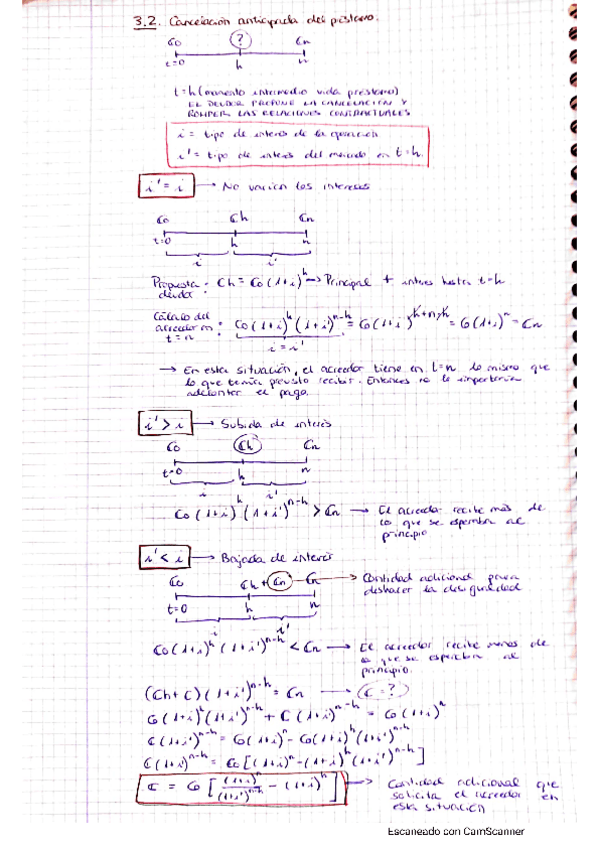 3.2. Cancelación anticipada del préstamo.
C₀ ? Cn
t=0 h n
t=h (momento intermedio vida préstamo)
EL DEUDOR PROPONE LA CANCELACIÓN Y
ROMPER LAS RELACIONES CONTRACTUALES
i = tipo de interés de la operación
i' = tipo de interés del mercado en t=h.
i' = i → No varían los intereses
C₀ Ch Cn
t=0 h n
i i'
Propuesta deudor : Ch = C₀(1+i)^h → Principal + interés hasta t=h
Cálculo del
acreedor en : C₀(1+i)^h (1+i')^n-h = C₀(1+i)^h+n-h = C₀(1+i)^n = Cn
t=n
i=i'
→ En esta situación, el acreedor tiene en t=n lo mismo que
lo que tenía previsto recibir. Entonces no le importaría
adelantar el pago.
i' > i → Subida de interés
C₀ Ch Cn
t=0 h n
i i'
C₀(1+i)^h (1+i')^n-h > Cn → El acreedor recibe más de
lo que se esperaba al
principio
i' < i → Bajada de interés
C₀ Ch + Cn Cn → Cantidad adicional para
deshacer la desigualdad
t=0 h n
i i'
C₀(1+i)^h (1+i')^n-h < Cn → El acreedor recibe menos de
lo que se esperaba al
principio.
(Ch+C)(1+i')^n-h = Cn → C=?
C₀(1+i)^h (1+i')^n-h + C(1+i')^n-h = C₀(1+i)^n
C(1+i')^n-h = C₀(1+i)^n - C₀(1+i)^h (1+i')^n-h
C(1+i)^n-h = C₀[(1+i)^n - (1+i)^h (1+i')^n-h]
C = C₀[(1+i)^n/(1+i')^n-h - (1+i)^h] → Cantidad adicional que
solicita el acreedor en
esta situación
Escaneado con CamScanner